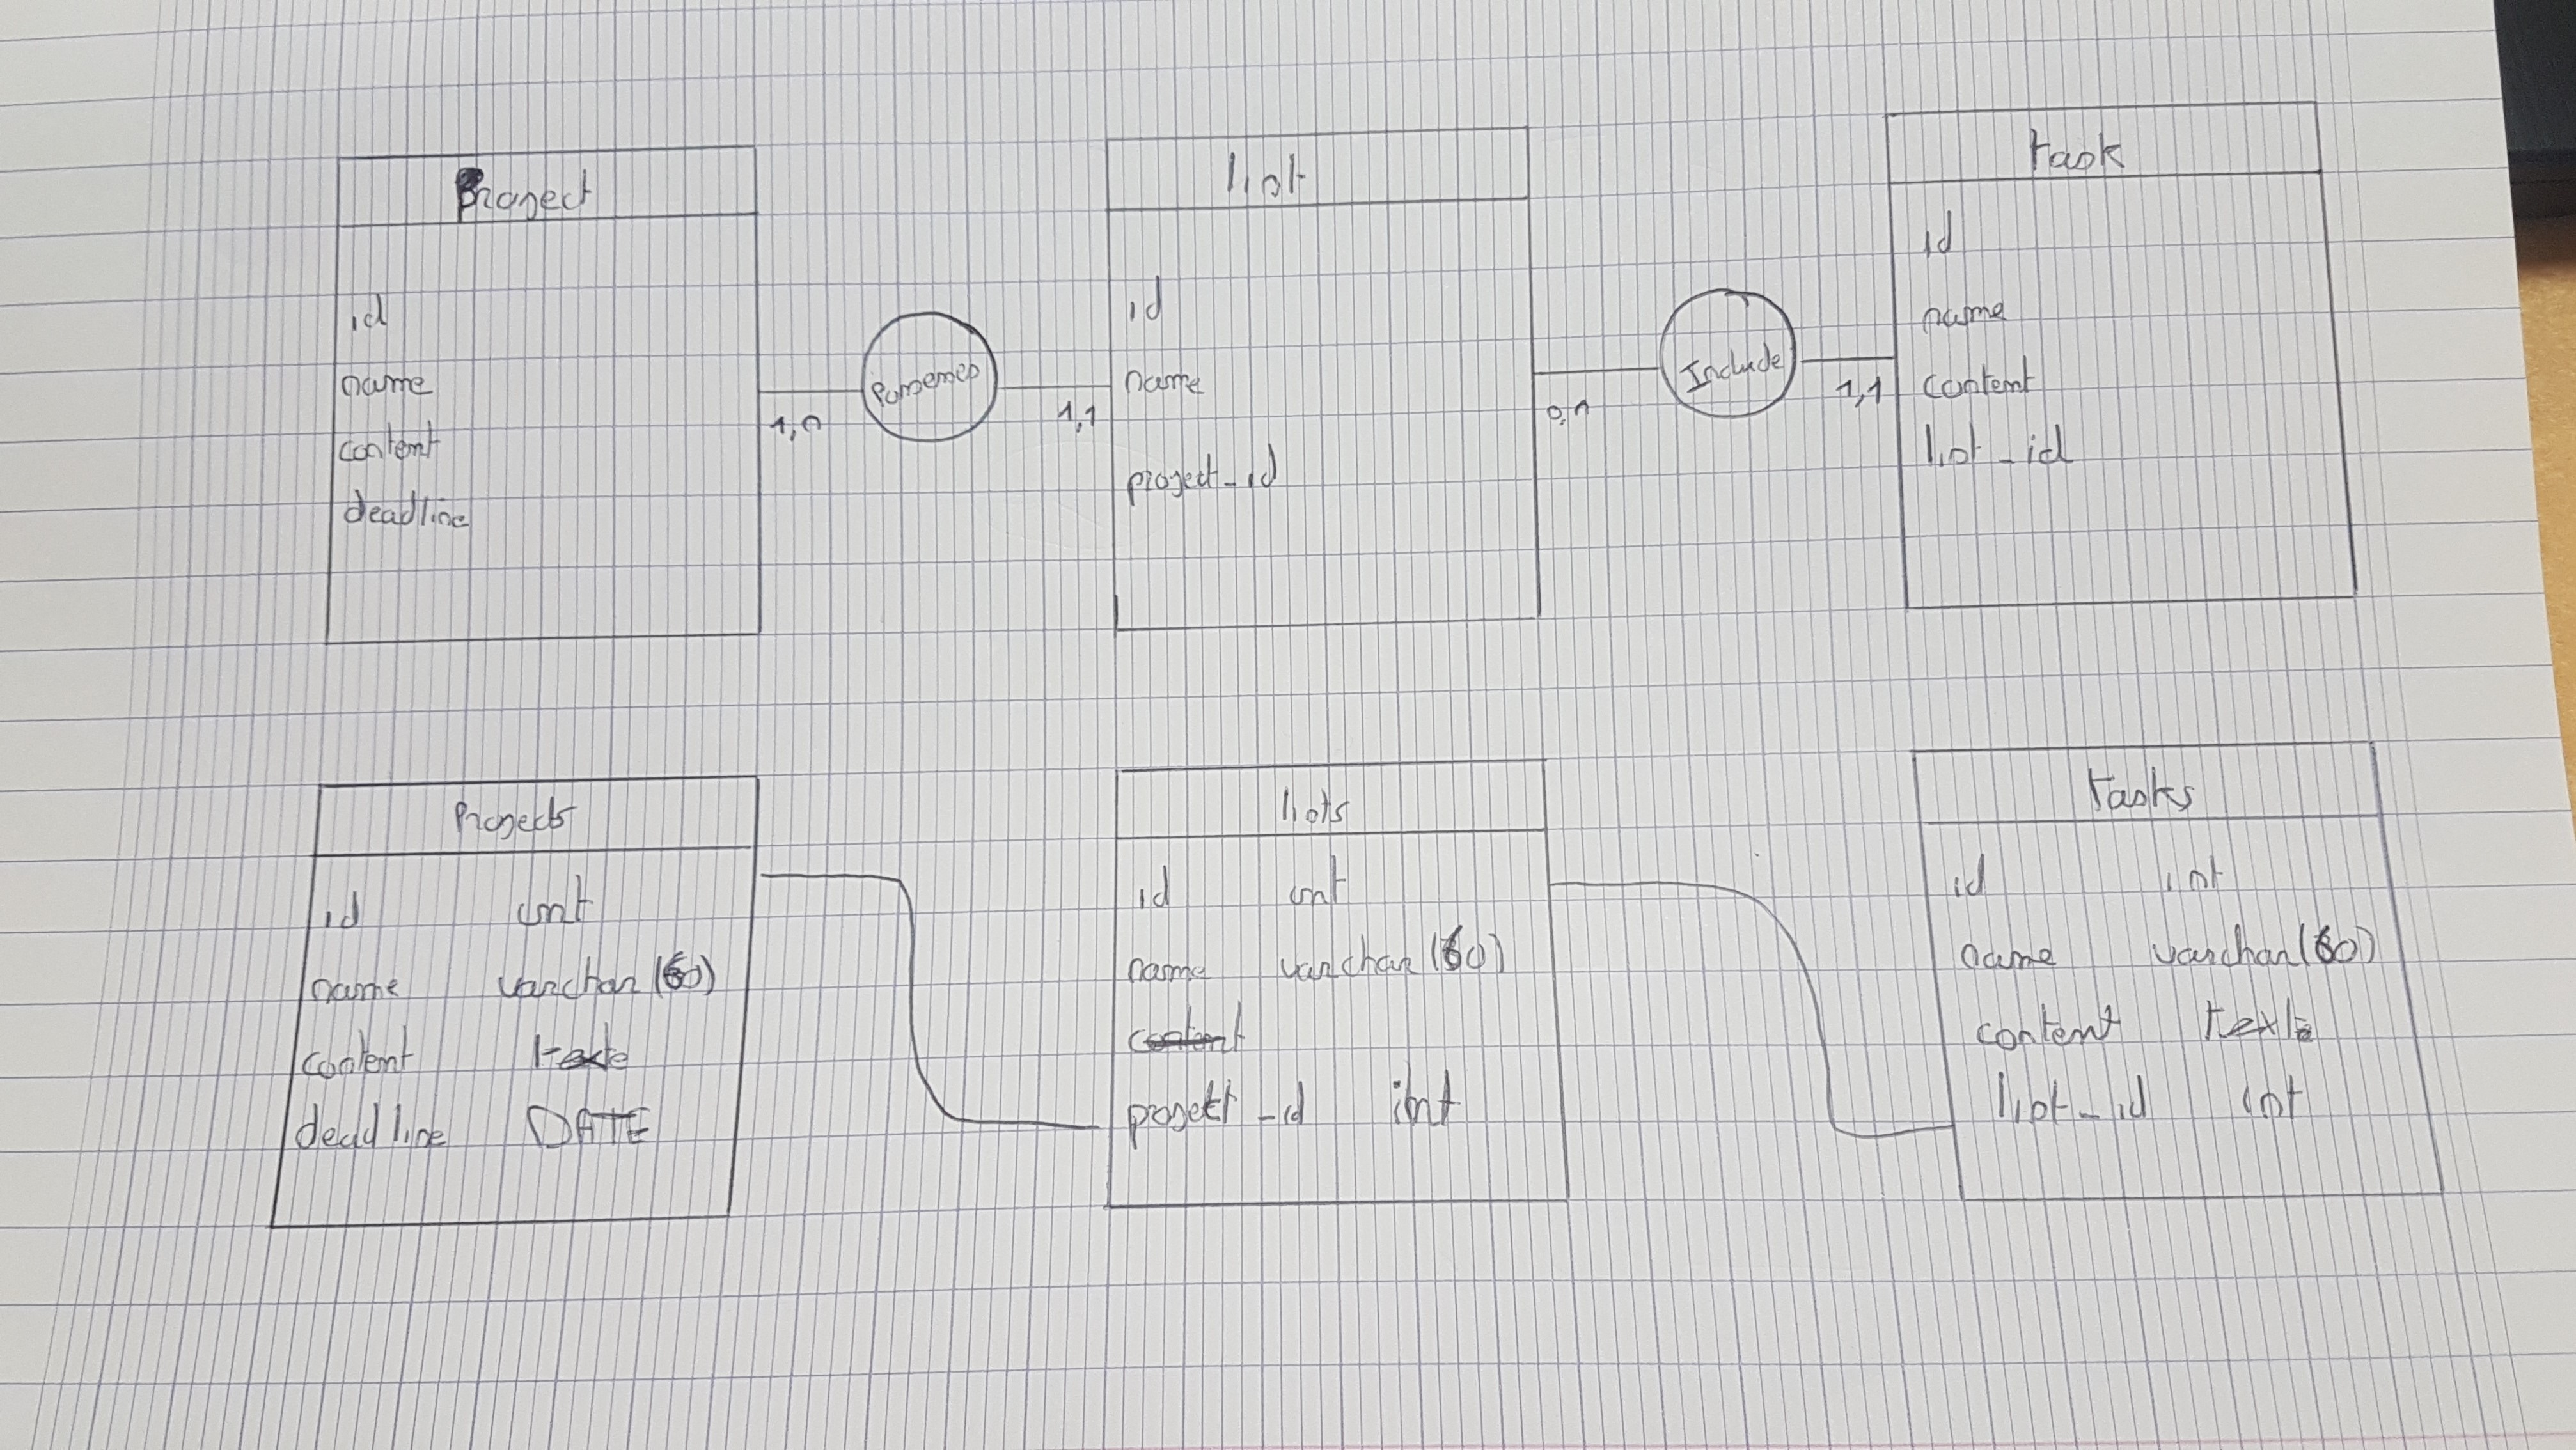 Project
id
name
content
deadline
1,n
1,1
list
id
name
project_id
0,n
Include
1,1
task
id
name
content
list_id
Projects
id int
name varchar(60)
content texte
deadline DATE
lists
id int
name varchar(60)
content
project_id int
tasks
id int
name varchar(60)
content texte
list_id int